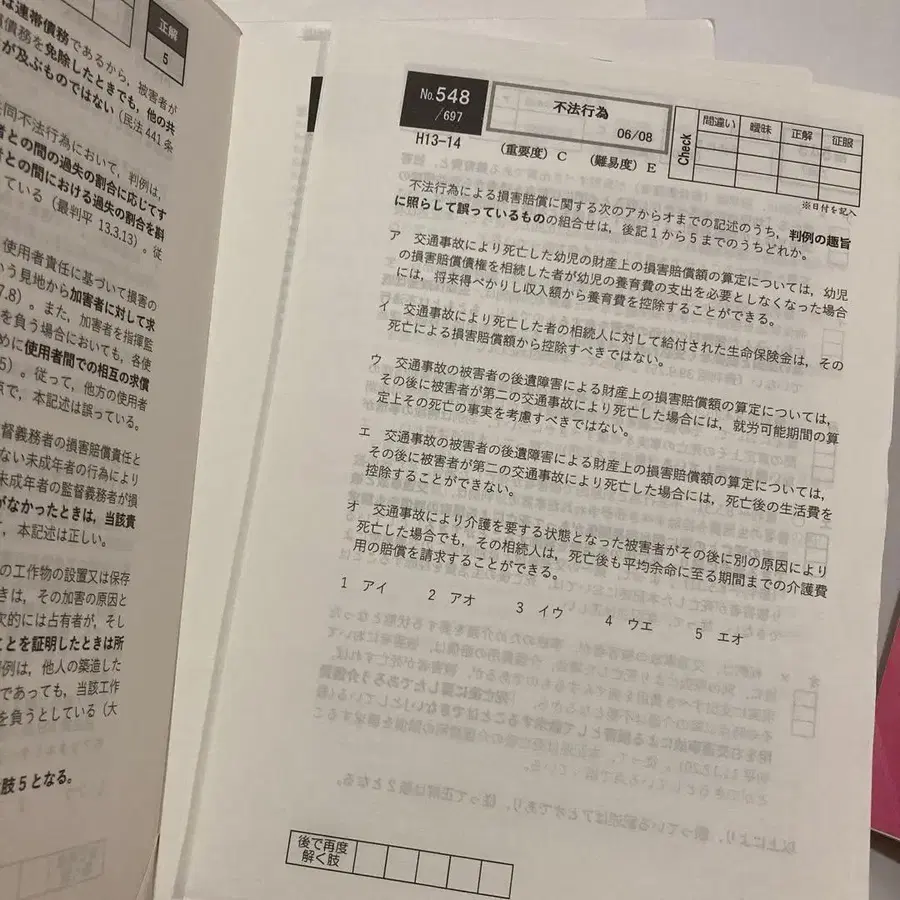 正解
5
は連帯債務であるから，被害者が
債務を免除したときでも，他の共
が及ぶものではない（民法441条
共同不法行為において，判例は，
者との間の過失の割合に応じてす
者との間における過失の割合を斟
ている（最判平13.3.13）。従
使用者責任に基づいて損害の
いう見地から加害者に対して求
7.8）。また，加害者を指揮監
を負う場合においても，各使
めに使用者間での相互の求償
5）。従って，他方の使用者
点で，本記述は誤っている。
督義務者の損害賠償責任と
ない未成年者の行為により
未成年者の監督義務者が損
がなかったときは，当該責
，本記述は正しい。
の工作物の設置又は保存
きは，その加害の原因と
次的には占有者が，そし
ことを証明したときは所
判例は，他人の築造した
であっても，当該工作
を負うとしている（大
肢5となる。
No.548
/697
不法行為
06/08
H13-14
（重要度）C （難易度）E
Check
間違い 曖昧 正解 征服
※日付を記入
不法行為による損害賠償に関する次のアからオまでの記述のうち，判例の趣旨
に照らして誤っているものの組合せは，後記1から5までのうちどれか。
ア 交通事故により死亡した幼児の財産上の損害賠償額の算定については，幼児
の損害賠償債権を相続した者が幼児の養育費の支出を必要としなくなった場合
には，将来得べかりし収入額から養育費を控除することができる。
イ 交通事故により死亡した者の相続人に対して給付された生命保険金は，その
死亡による損害賠償額から控除すべきではない。
ウ 交通事故の被害者の後遺障害による財産上の損害賠償額の算定については，
その後に被害者が第二の交通事故により死亡した場合には，就労可能期間の算
定上その死亡の事実を考慮すべきではない。
エ 交通事故の被害者の後遺障害による財産上の損害賠償額の算定については，
その後に被害者が第二の交通事故により死亡した場合には，死亡後の生活費を
控除することができない。
オ 交通事故により介護を要する状態となった被害者がその後に別の原因により
死亡した場合でも，その相続人は，死亡後も平均余命に至る期間までの介護費
用の賠償を請求することができる。
1 アイ 2 アオ 3 イウ 4 ウエ 5 エオ
後で再度
解く肢